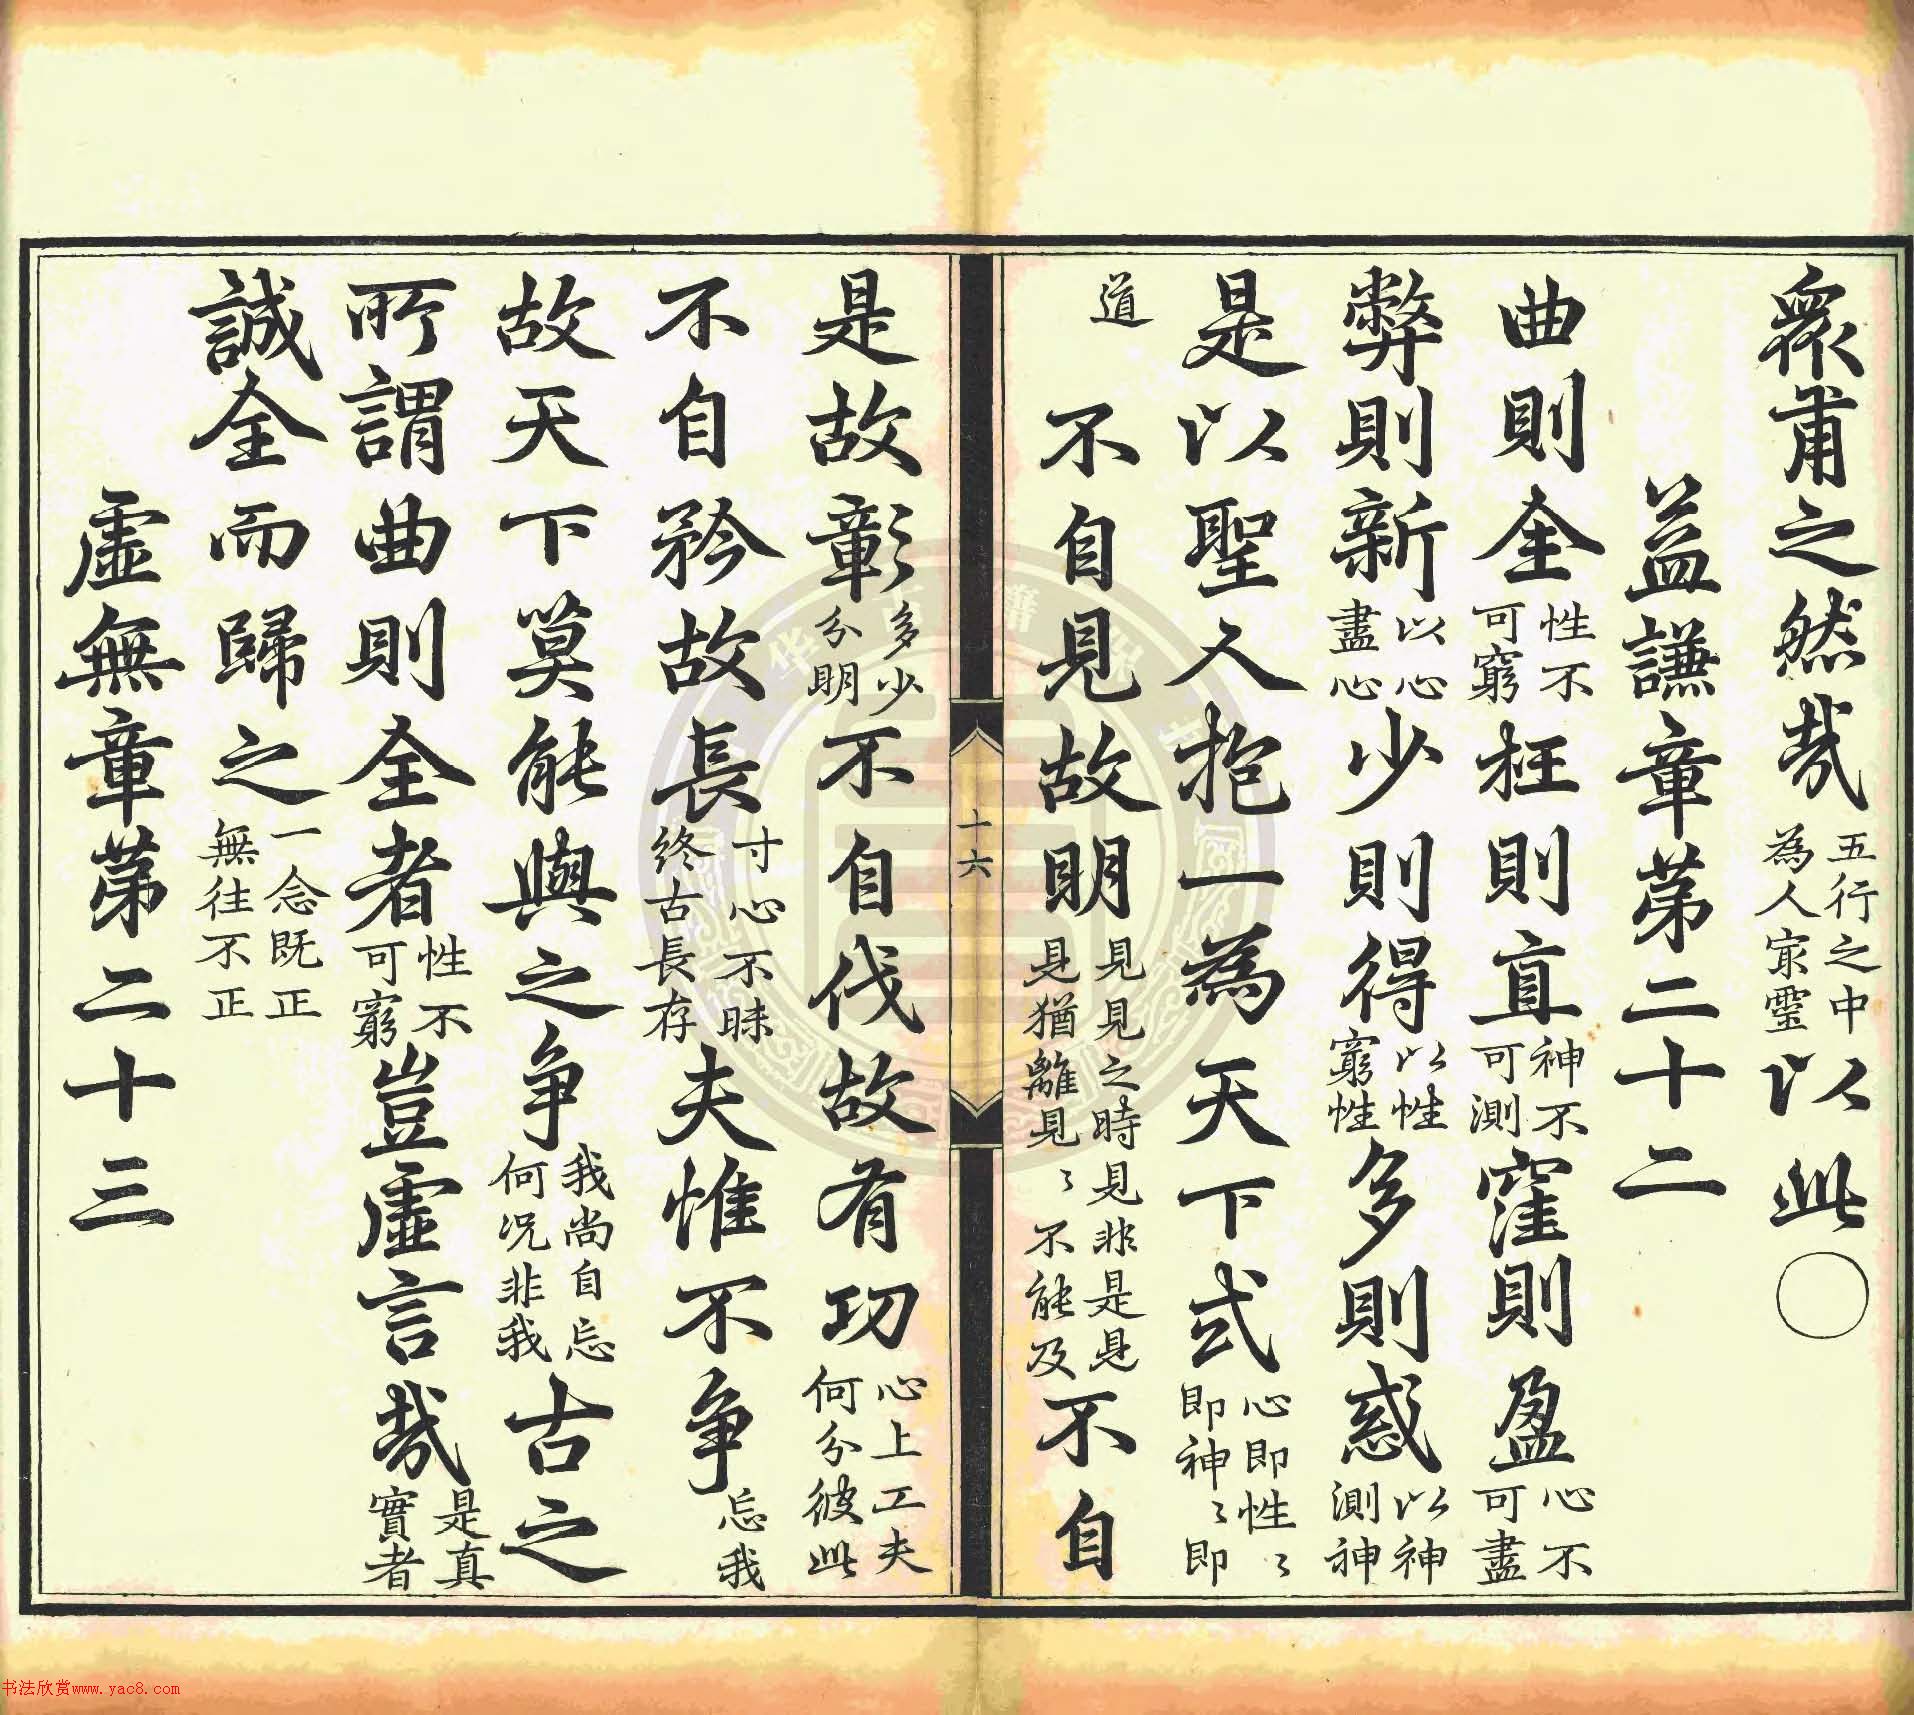 衆甫之然哉五行之中為人㝡靈以此○
益謙章第二十二
曲則全性不可窮枉則直神不可測窪則盈心不可盡
弊則新以心盡心少則得以性窮性多則惑以神測神
是以聖人抱一為天下式心即性〻即神〻即
道不自見故明見見之時見非是見見猶離見〻不能及不自
十六
是故彰多少分明不自伐故有功心上工夫何分彼此
不自矜故長寸心不昧終古長存夫惟不爭忘我
故天下莫能與之爭我尚自忘何況非我古之
所謂曲則全者性不可窮豈虛言哉是真實者
誠全而歸之一念既正無往不正
虛無章第二十三
书法欣赏www.yac8.com